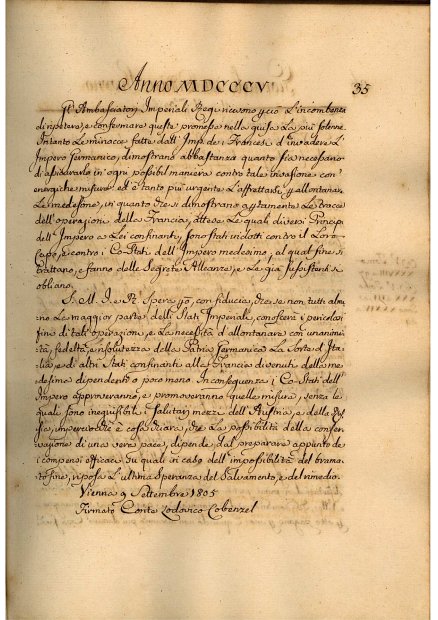 Anno MDCCCV.
35
Gl' Ambasciatori Imperiali Ressi ricevono perciò l'incombenza
di ripetere, e confermare questa promessa nella guisa la più solenne.
Intanto le minacce fatte dall' Imp. de Francesi d'invadere l'
Impero Germanico, dimostrano abbastanza quanto sia necessario
di assodarlo in ogni possibil maniera contro tale invasione con
energiche misure ed è tanto più urgente l'affrettarsi per allontanar
le medesime, in quanto che si dimostrano apertamente le tracce
dell'operazioni della Francia, attese le quali diversi Principi
dell' Impero a Lei confinanti, sono stati indotti contro il Loro
Capo, e contro i Co-Stati dell' Impero medesimo, al qual fine si
trattano, e fanno delle Segrete Alleanze, e le già sussistenti si
obliano.
S. M. I. e R. Spera però, con fiducia, che se non tutti alme
no la maggior parte delli Stati Imperiali, conoscerà i pericolosi
fini di tali operazioni, e la necessità d'allontanare con unanimi
tà, fedeltà, e risolutezza della Patria Germanica la Sorte d'Ita
lia, e di altri Stati confinanti alla Francia divenuti della me
desima dependenti o poco meno. In conseguenza i Co-Stati dell'
Impero approveranno, e promoveranno quelle misure, senza le
quali sono ineseguibili i salutari mezzi dell' Austria, e della Rus
sia, imperciocchè è cosa chiara, che la possibilità della conser
vazione di una vera pace, dipende dal preparare appunto de
i compensi efficaci su quali in caso dell' impossibilità del brama
to fine, riposa l'ultima Speranza del Salvamento, e del rimedio.
Vienna 9 Settembre 1805
Firmato Conte Lodovico Cobenzel